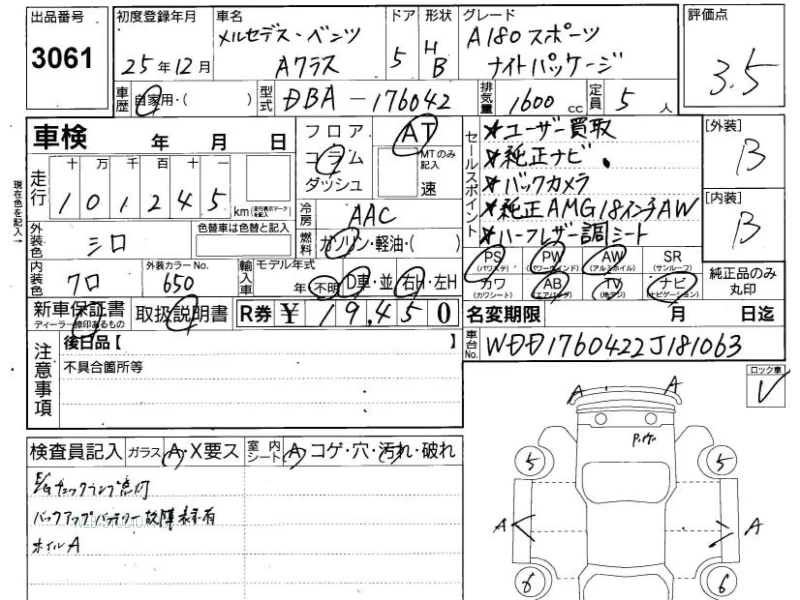 出品番号
3061
初度登録年月
25年12月
車名
メルセデス・ベンツ
Aクラス
ドア
5
形状
H
B
グレード
A180スポーツ
ナイトパッケージ
評価点
3.5
車歴
自家用・( )
型式
DBA-176042
排気量
1600 cc
定員
5 人
車検 年 月 日
フロア
コラム
ダッシュ
AT
MTのみ記入
速
セールスポイント
★ユーザー買取
★純正ナビ
★バックカメラ
★純正AMG18インチAW
★ハーフレザー調シート
[外装]
B
[内装]
B
走行
十 万 千 百 十 一
101245 km
現在色を記入→
冷房
AAC
燃料
ガソリン・軽油・( )
外装色
シロ
色替車は色替と記入
内装色
クロ
外装カラーNo.
650
輸入車
モデル年式
年 不明
D車・並
右H・左H
PS
(パワステ)
PW
(パワーウインド)
AW
(アルミホイル)
SR
(サンルーフ)
カワ
(カワシート)
AB
(エアバッグ)
TV
ナビ
(ナビゲーション)
純正品のみ
丸印
新車保証書
取扱説明書
R券 ¥ 19,450
名変期限 月 日迄
車台No.
WDD1760422J181063
注意事項
後日品【 】
不具合箇所等
ロック車
検査員記入
ガラス
A・X要ス
室内シート
A・コゲ・穴・汚れ・破れ
E/Gチェックランプ点灯
バックアップバッテリー故障表示有
ホイルA
A
A
5
5
A
A
6
6